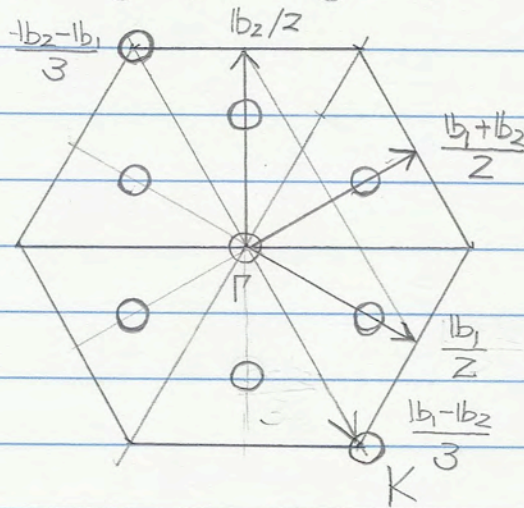 -𝕓₂-𝕓₁
3
𝕓₂/2
𝕓₁+𝕓₂
2
Γ
𝕓₁
2
𝕓₁-𝕓₂
3
K